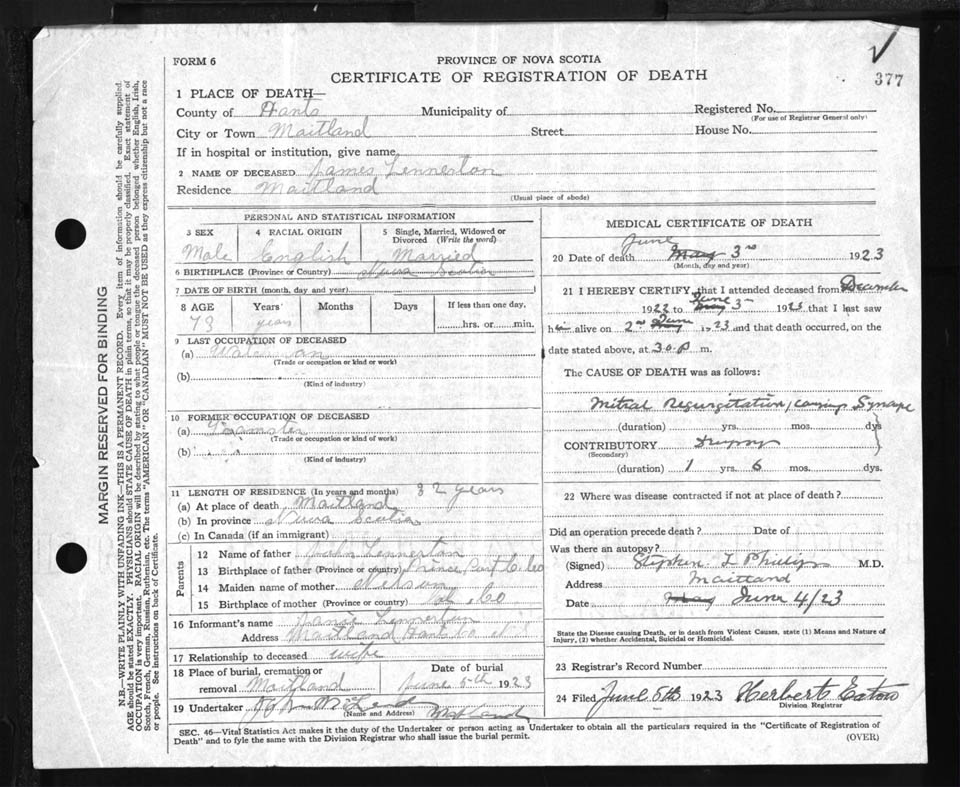 FORM 6
PROVINCE OF NOVA SCOTIA
CERTIFICATE OF REGISTRATION OF DEATH
377
1 PLACE OF DEATH—
County of Hants Municipality of Registered No.
(For use of Registrar General only)
City or Town Maitland Street House No.
If in hospital or institution, give name
2 NAME OF DECEASED James Lennerton
Residence Maitland
(Usual place of abode)
PERSONAL AND STATISTICAL INFORMATION
3 SEX 4 RACIAL ORIGIN 5 Single, Married, Widowed or Divorced (Write the word)
Male English Married
6 BIRTHPLACE (Province or Country) Nova Scotia
7 DATE OF BIRTH (month, day and year)
8 AGE Years Months Days If less than one day,
73 years hrs. or min.
9 LAST OCCUPATION OF DECEASED
(a)
(Trade or occupation or kind or work)
(b)
(Kind of industry)
10 FORMER OCCUPATION OF DECEASED
(a) Teamster
(Trade or occupation or kind of work)
(b)
(Kind of industry)
11 LENGTH OF RESIDENCE (In years and months) 32 years
(a) At place of death Maitland
(b) In province Nova Scotia
(c) In Canada (if an immigrant)
Parents
12 Name of father John Lennerton
13 Birthplace of father (Province or country)
14 Maiden name of mother Nelson
15 Birthplace of mother (Province or country) Co
16 Informant's name Lennerton
Address Maitland Hants Co
17 Relationship to deceased wife
18 Place of burial, cremation or removal Maitland
Date of burial June 5th 1923
19 Undertaker
(Name and Address) Maitland
MEDICAL CERTIFICATE OF DEATH
20 Date of death June May 3rd 1923
(Month, day and year)
21 I HEREBY CERTIFY, that I attended deceased from December
1922 to June May 3rd 1923 that I last saw
him alive on 2nd June May 1923 and that death occurred, on the
date stated above, at 3 0 p m.
The CAUSE OF DEATH was as follows:
Mitral Regurgitation, causing Syncope
(duration) yrs. mos. dys
CONTRIBUTORY Dropsy
(Secondary)
(duration) 1 yrs. 6 mos. dys.
22 Where was disease contracted if not at place of death?
Did an operation precede death? Date of
Was there an autopsy?
(Signed) Stephen L Phillips M.D.
Address Maitland
Date May June 4/23
State the Disease causing Death, or in death from Violent Causes, state (1) Means and Nature of
Injury, (2) whether Accidental, Suicidal or Homicidal.
23 Registrar's Record Number
24 Filed June 5th 1923 Herbert Eaton
Division Registrar
SEC. 46—Vital Statistics Act makes it the duty of the Undertaker or person acting as Undertaker to obtain all the particulars required in the "Certificate of Registration of
Death" and to fyle the same with the Division Registrar who shall issue the burial permit.
(OVER)
MARGIN RESERVED FOR BINDING
N.B.—WRITE PLAINLY WITH UNFADING INK—THIS IS A PERMANENT RECORD. Every item of information should be carefully supplied.
AGE should be stated EXACTLY. PHYSICIANS should STATE CAUSE OF DEATH in plain terms, so that it may be properly classified. Exact statement of
OCCUPATION is very important. RACIAL ORIGIN will be described by stating to what people or tongue the deceased person belonged whether English, Irish,
Scotch, French, German, Russian, Ruthenian, etc. The terms "AMERICAN" OR "CANADIAN" MUST NOT BE USED as they express citizenship but not a race
or people. See instructions on back of Certificate.